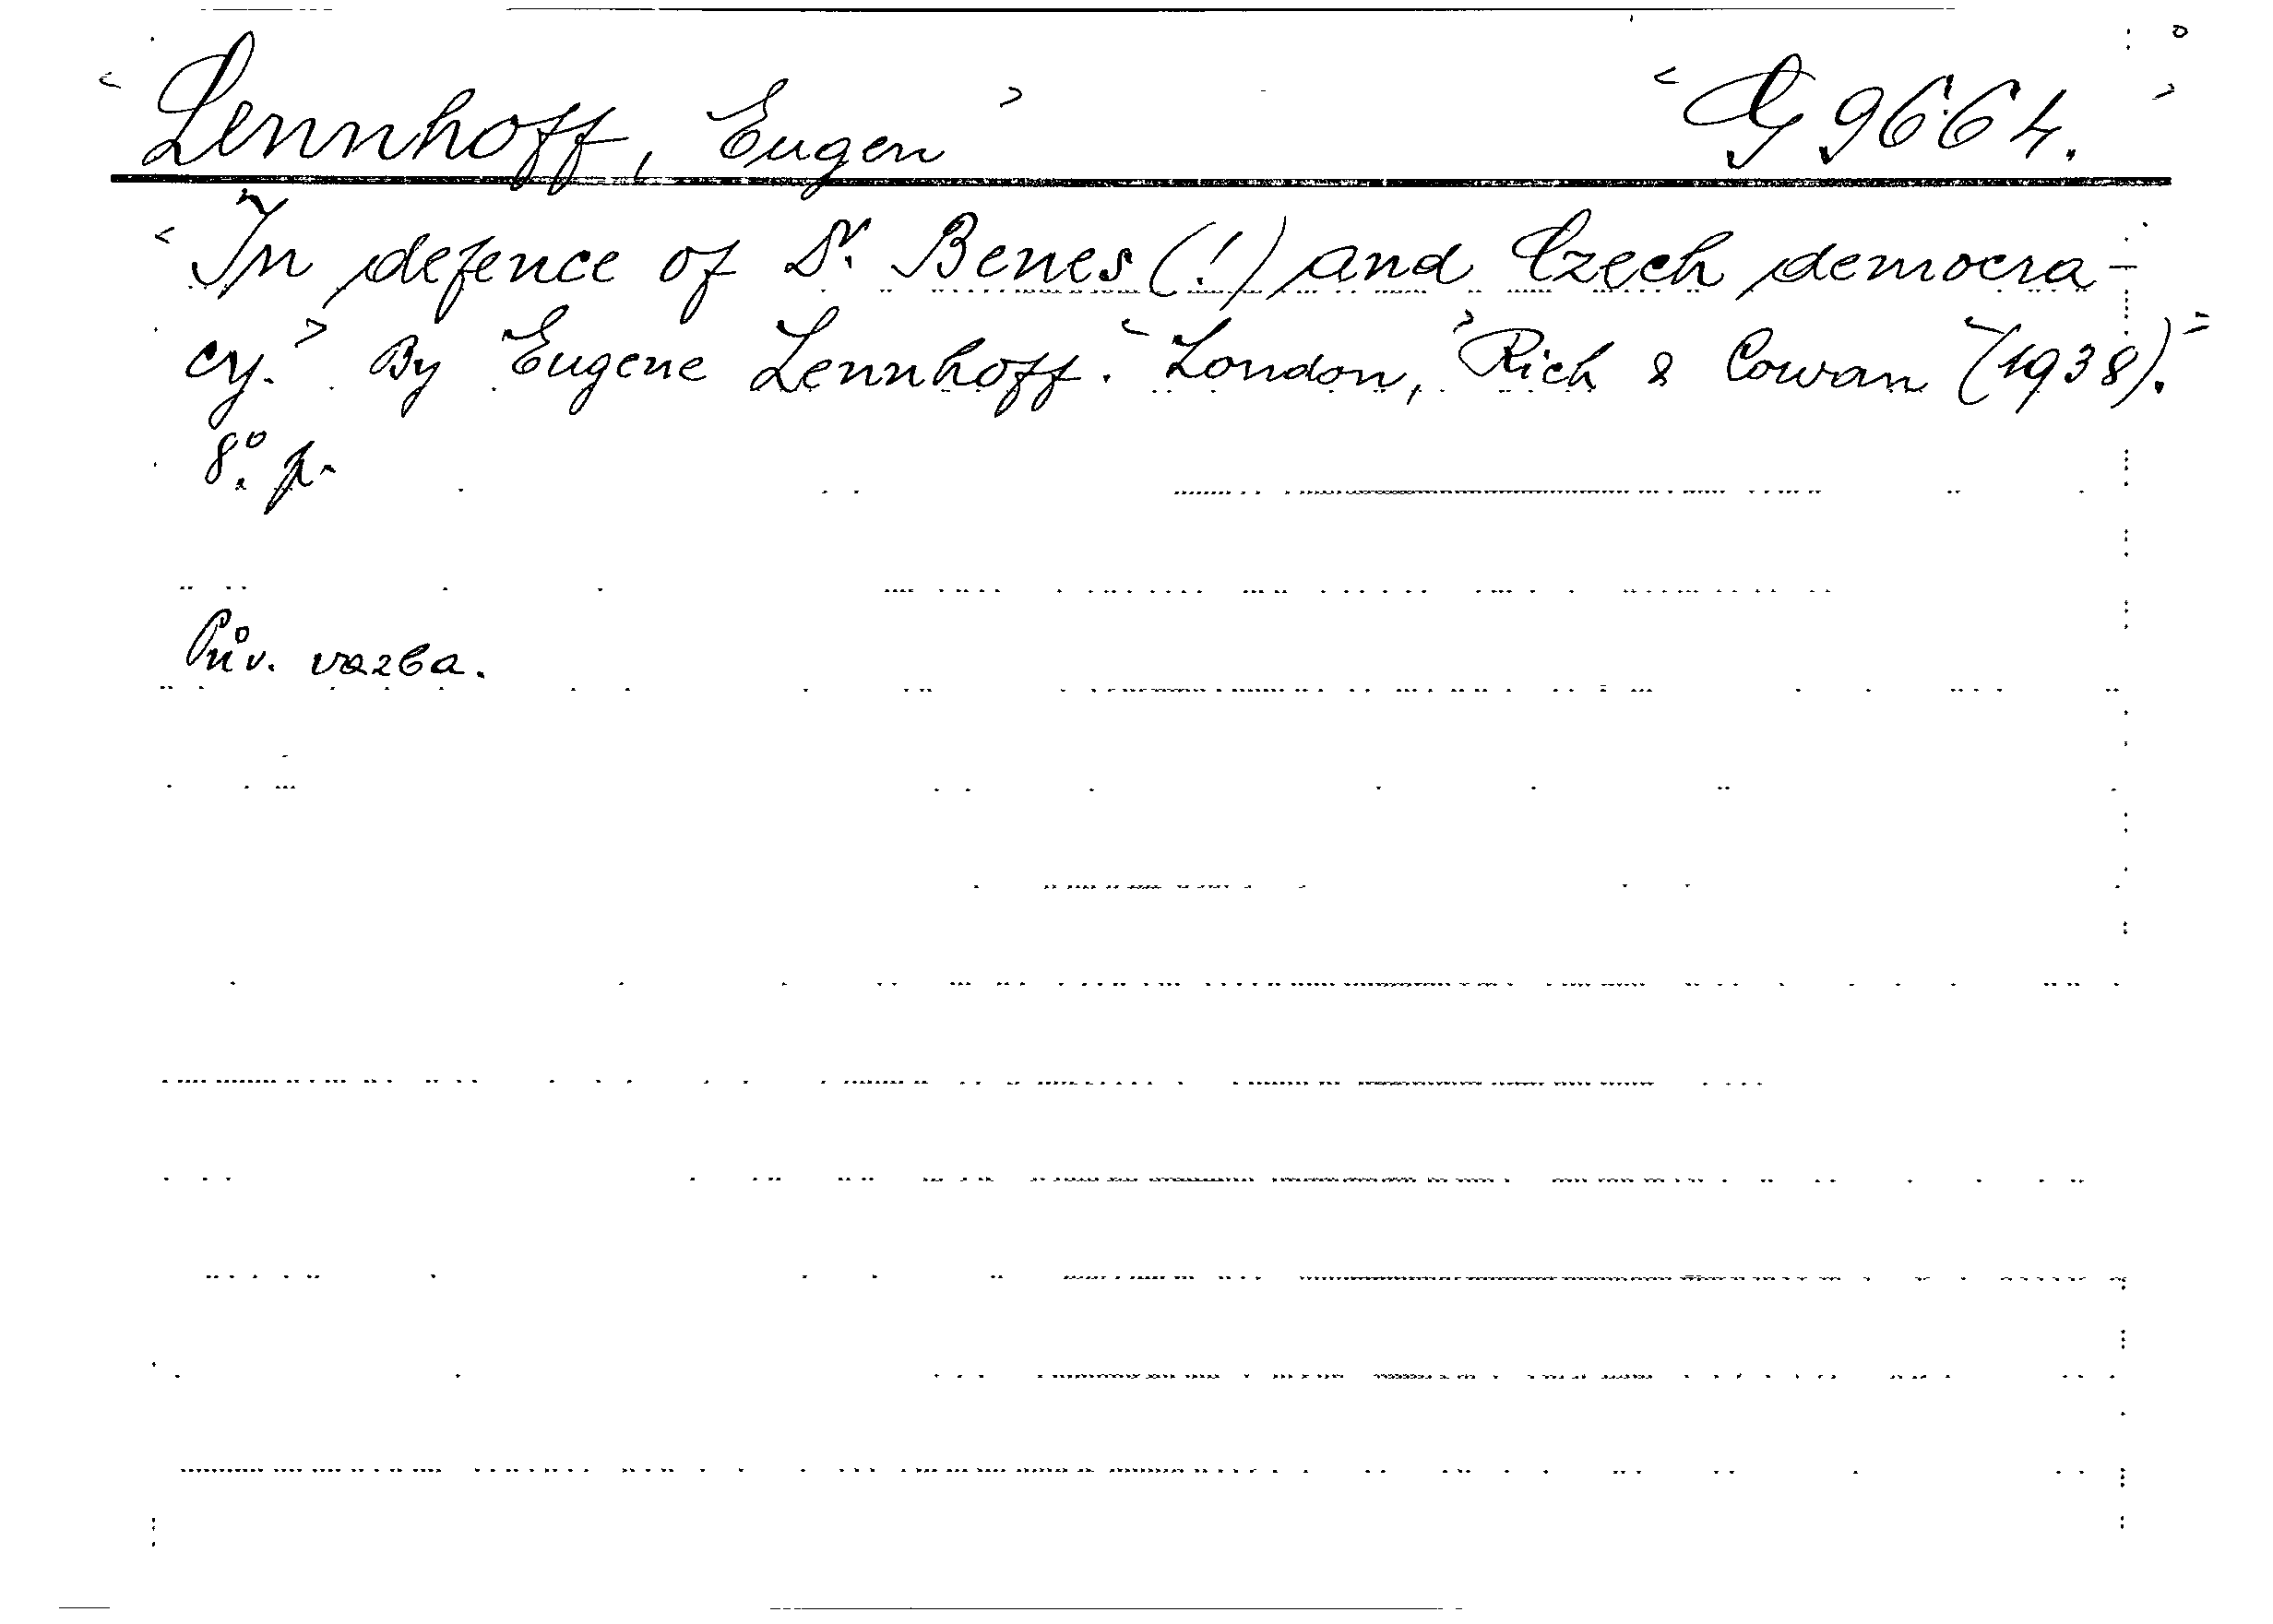 Lennhoff, Eugen G 9664.
In defence of Dr. Benes (!) and Czech democra-
cy. By Eugene Lennhoff. London, Rich & Cowan (1938).
8°. p.
Pův. vazba.